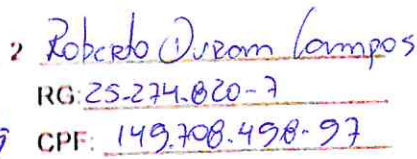 2 Roberto Duram Campos
RG: 25-274.820-7
CPF: 149.708.498-97